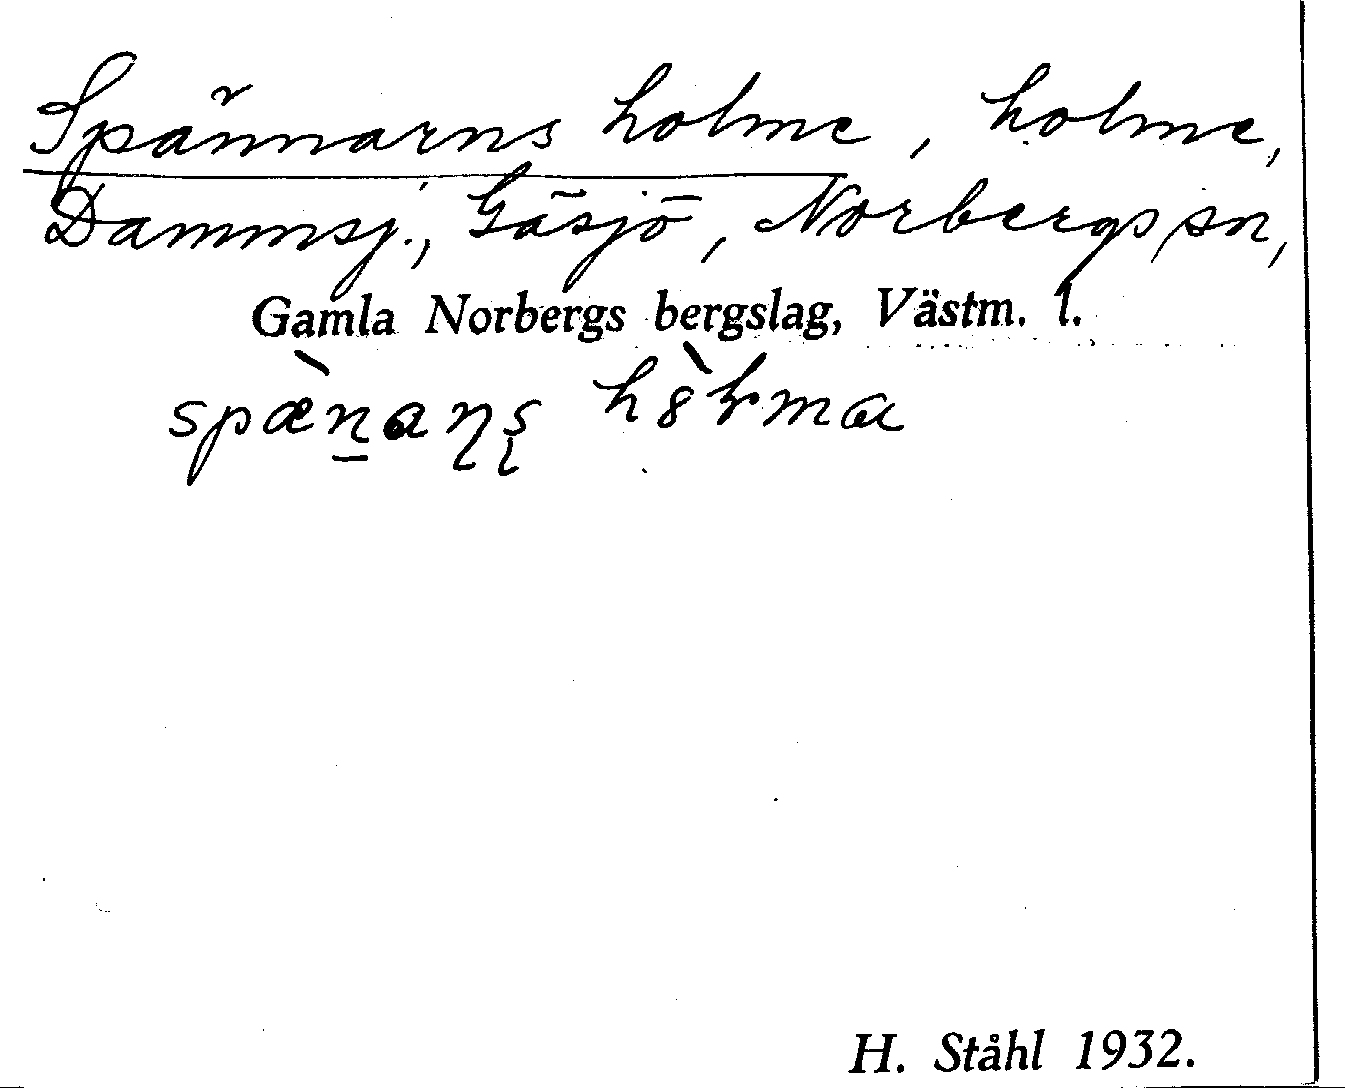 Spännarns holme, holme,
Dammsj., Gäsjö, Norbergs sn,
Gamla Norbergs bergslag, Västm. l.
spæ̀n̠aɳʂ hȍɽma
H. Ståhl 1932.